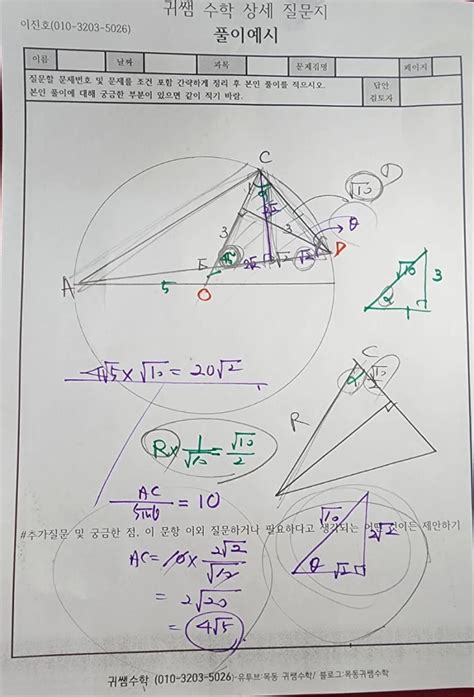 귀쌤 수학 상세 질문지
이진호(010-3203-5026)
풀이예시
이름 날짜 과목 문제집명 페이지
질문할 문제번호 및 문제를 조건 포함 간략하게 정리 후 본인 풀이를 적으시오.
본인 풀이에 대해 궁금한 부분이 있으면 같이 적기 바람.
답안
검토자
C
√10
①
θ
3
3
2√2
A
E
2√2
3√2
√2
D
5
O
√10
3
α
C
4√5 × √10 = 20√2
α
√10
2
R
R × 1/√10 = √10/2
AC/sinθ = 10
√10
2√2
θ
√2
#추가질문 및 궁금한 점, 이 문항 이외 질문하거나 필요하다고 생각되는 어떤 것이든 제안하기
AC = 10 × 2√2/√10
= 2√20
= 4√5
귀쌤수학 (010-3203-5026)-유투브:목동 귀쌤수학/ 블로그:목동귀쌤수학